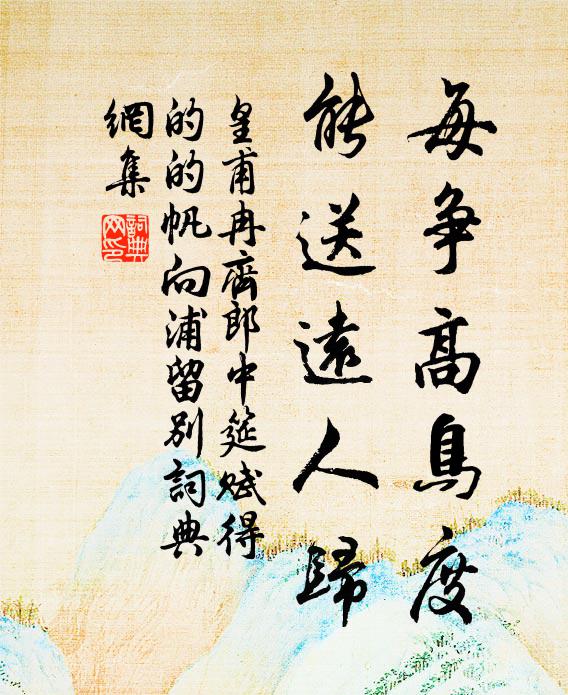 每争高鳥度
能送遠人歸
皇甫冉齊郎中筵賦得
的的帆向浦留別詞典
網集
詞典
网印